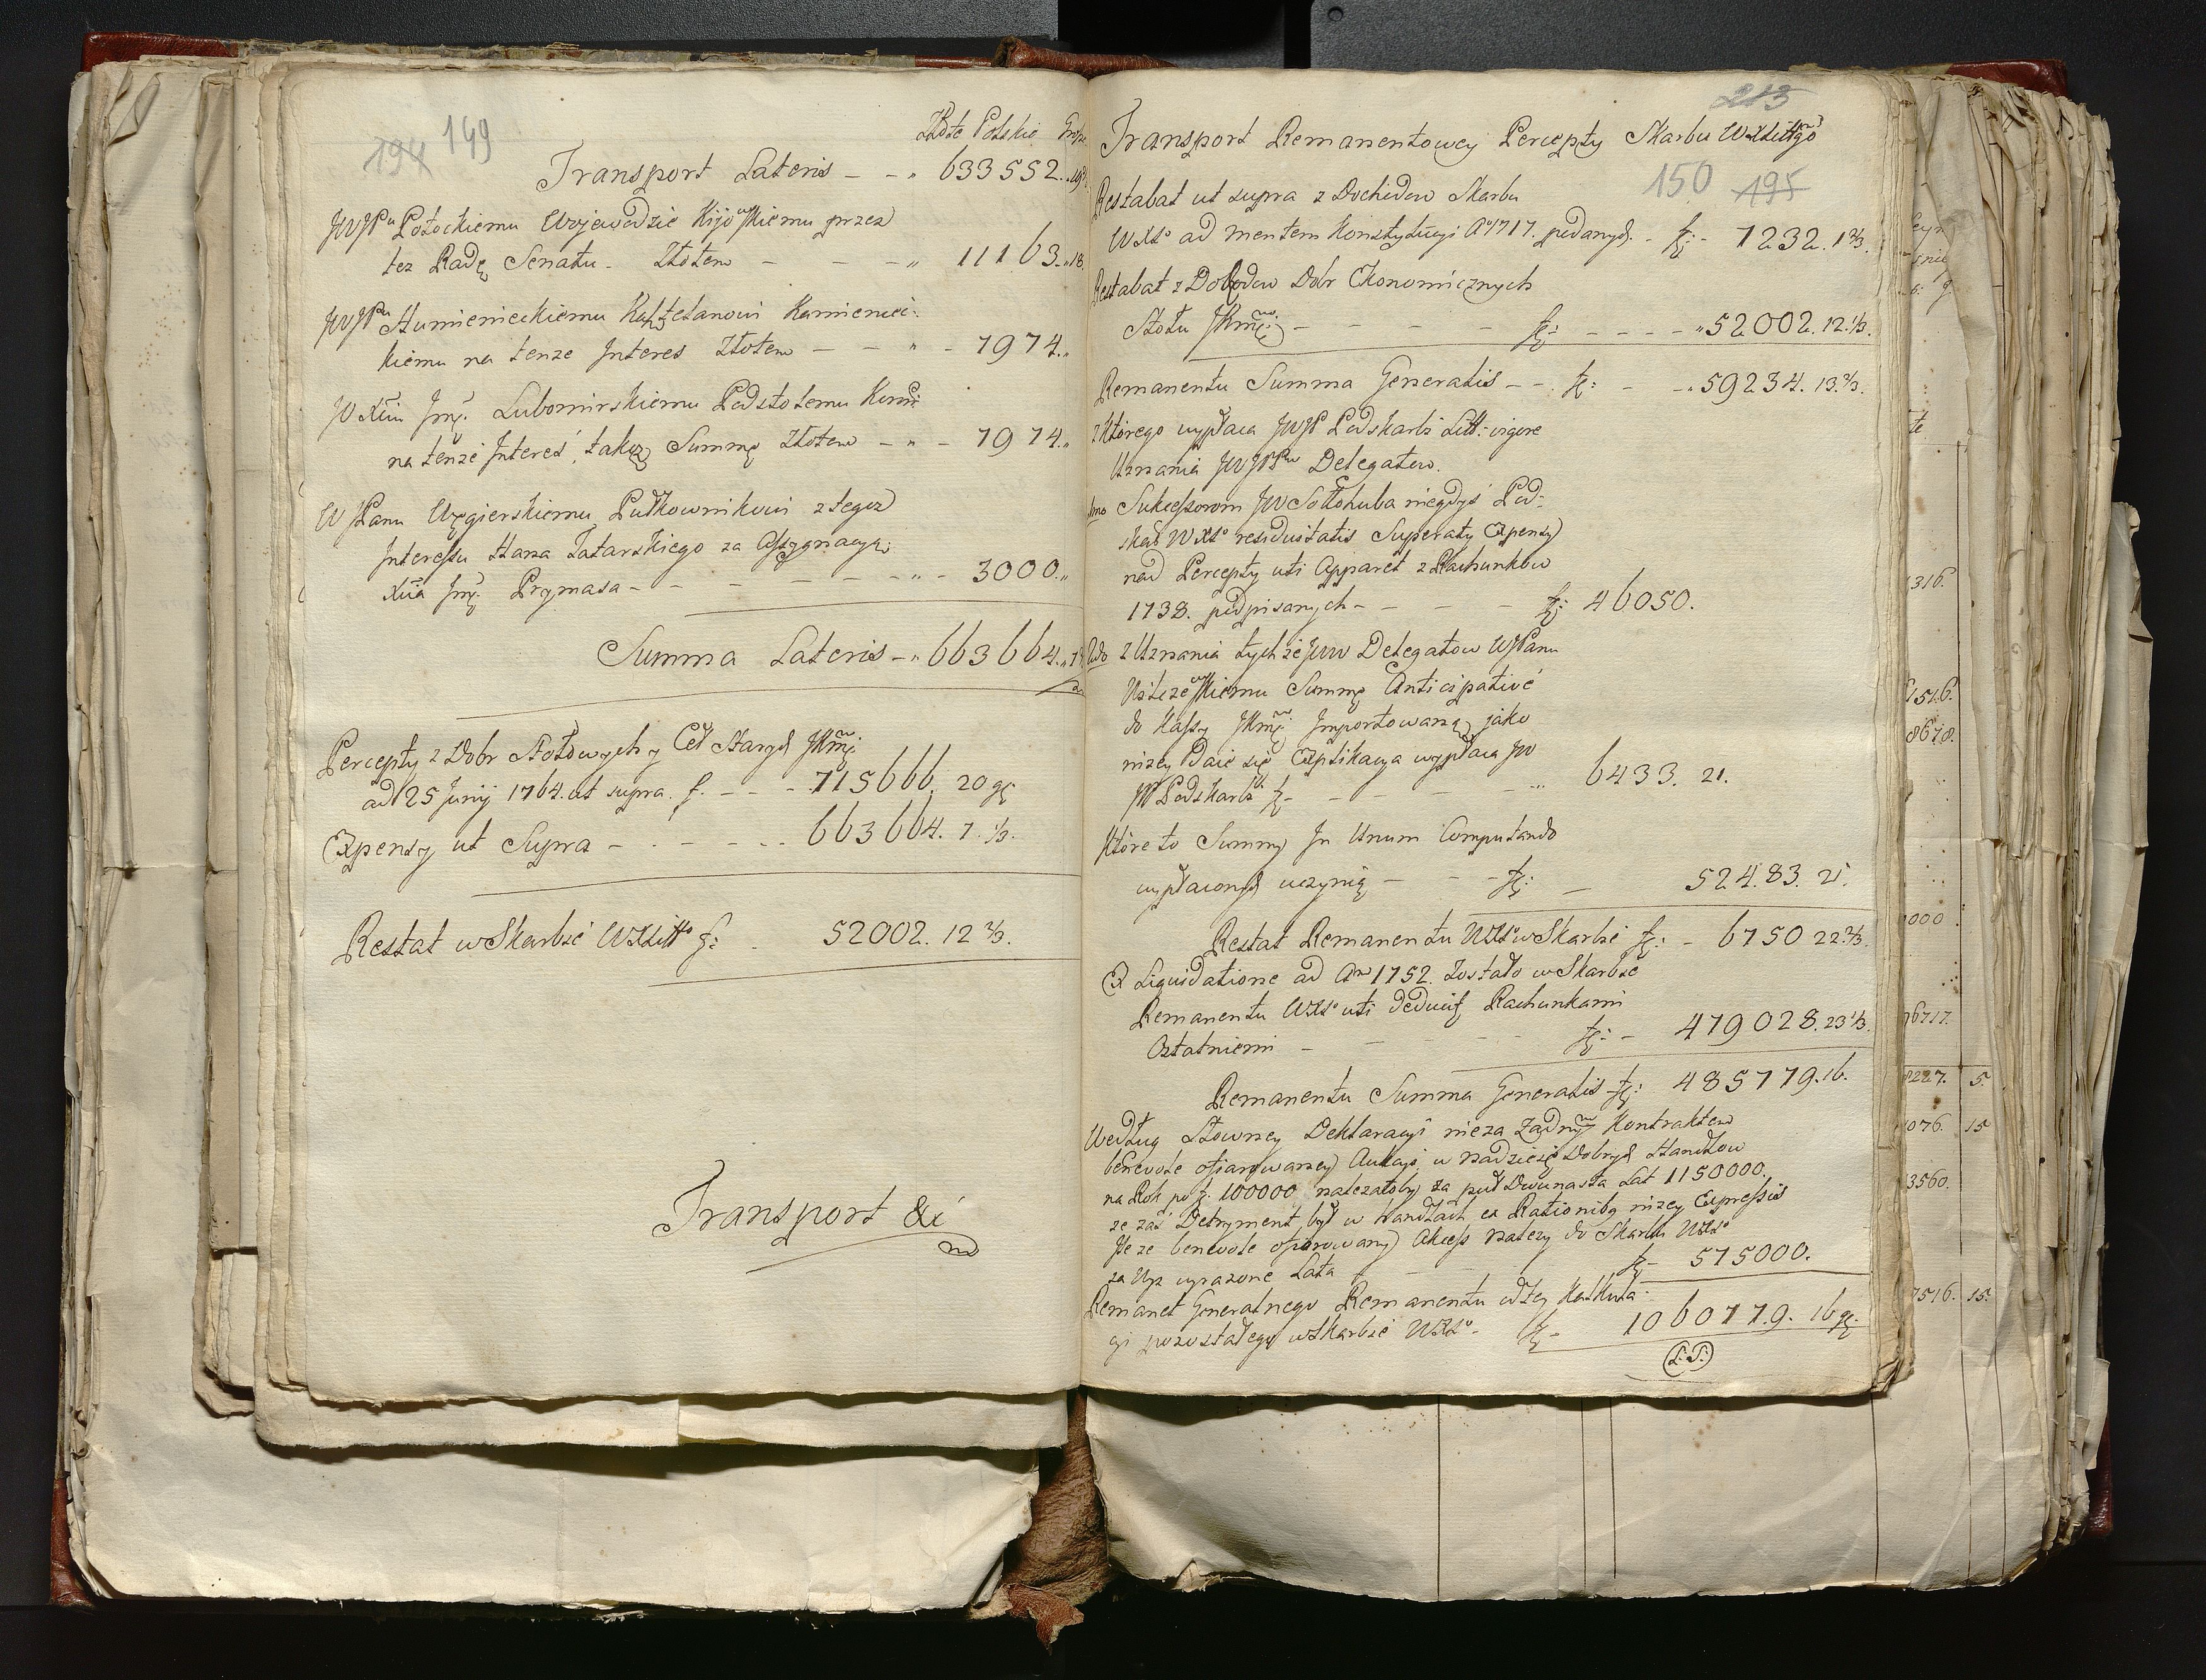 194 149
Złote Polskie
Transport Lateris - - " 633552.
JWJPu Potockiemu Wojewodzie Kijowskiemu przez
tez Radę Senatu - Złotem - - - " 11163. 18.
JWJPu Humienieckiemu Kasztelanowi Kamieniec-
kiemu na tenze Interes Złotem - - " - 7974.
Lubomirskiemu Podstolemu
na tenze Interes, takoz Summę Złotem - " - 7974.
WJPanu Węgierskiemu Pułkownikowi z tegoz
Interessu Hana Tatarskiego za Assygnacyą
Xcia Jmę Prymasa - - - - - - " - 3000.
Summa Lateris - " 663664.
Percepty z Dobr Stołowych y Ceł Starych JKmę
ad 25 Junij 1764. ut supra. f. - - - 715666. 20 gr
Expensy ut Supra - - - - - - 663664. 7. 1/3.
Restat w Skarbie WXLitto f: - 52002. 12 2/3.
Transport &c
213
Transport Remanentowey Percepty Skarbu WXLittgo
150 195
Restabat ut supra z Dochodow Skarbu
WXLo ad mentem Konstytucyi Ao 1717. podanych - f: - 7232. 1 2/3.
Restabat z Dochodow Dobr Ekonomicznych
Stołu JKmci - - - - f: - - - - " 52002. 12. 1/3.
Remanentu Summa Generalis - - f: - - " 59234. 13. 2/3.
z Którego wypłaca JWJP Podskarbi Litt: vigore
Uznania JWJPPw Delegatow.
1mo Sukcessorom JW Sołłohuba niegdyś Pod-
skar WXLo residuitatis Superaty Expensy
nad Percepty uti Apparet z Rachunkow
1738. podpisanych - - - - f: 46050.
2do z Uznania tychże JWW Delegatow WJPanu
Summę Anticipativé
do Kassy JKmę Importowaną, jako
nizey Daie się Explikacya wypłaca JW
JP Podskarbi f - - - - - " 6433. 21.
Które to Summy In Unum Computando
wypłaconych uczynią - - - f: - 52483. 21.
Restat Remanentu WXLo w Skarbie f: - 6750 22 2/3.
Ex Liquidatione ad Anm 1752. Zostało w Skarbie
Remanentu WXLo uti Rachunkami
Ostatniemi - - - - - f: - 479028. 23 1/3.
Remanentu Summa Generalis f: 485779. 16.
Według Słowney Deklaracyi nieza Zadnym Kontraktem
benevole ofiarowaney Aukcyi, w nadzieię Dobrych Handlow
na Rok po f. 100000 nalezałoby za puł Dwunasta Lat 1150000.
ze zaś Detryment był w handlach ex Rationibq nizey Expressis
Ale ze benevole ofiarowany Akcess nalezy do Skarbu WXLo
za Wyz wyrazone Lata - - - f - 575000.
Remanet Generalnego Remanentu z tey Kalkula-
cyi pozostałego w Skarbie WXLo - f - 1060779. 16 gr.
(L.S.)